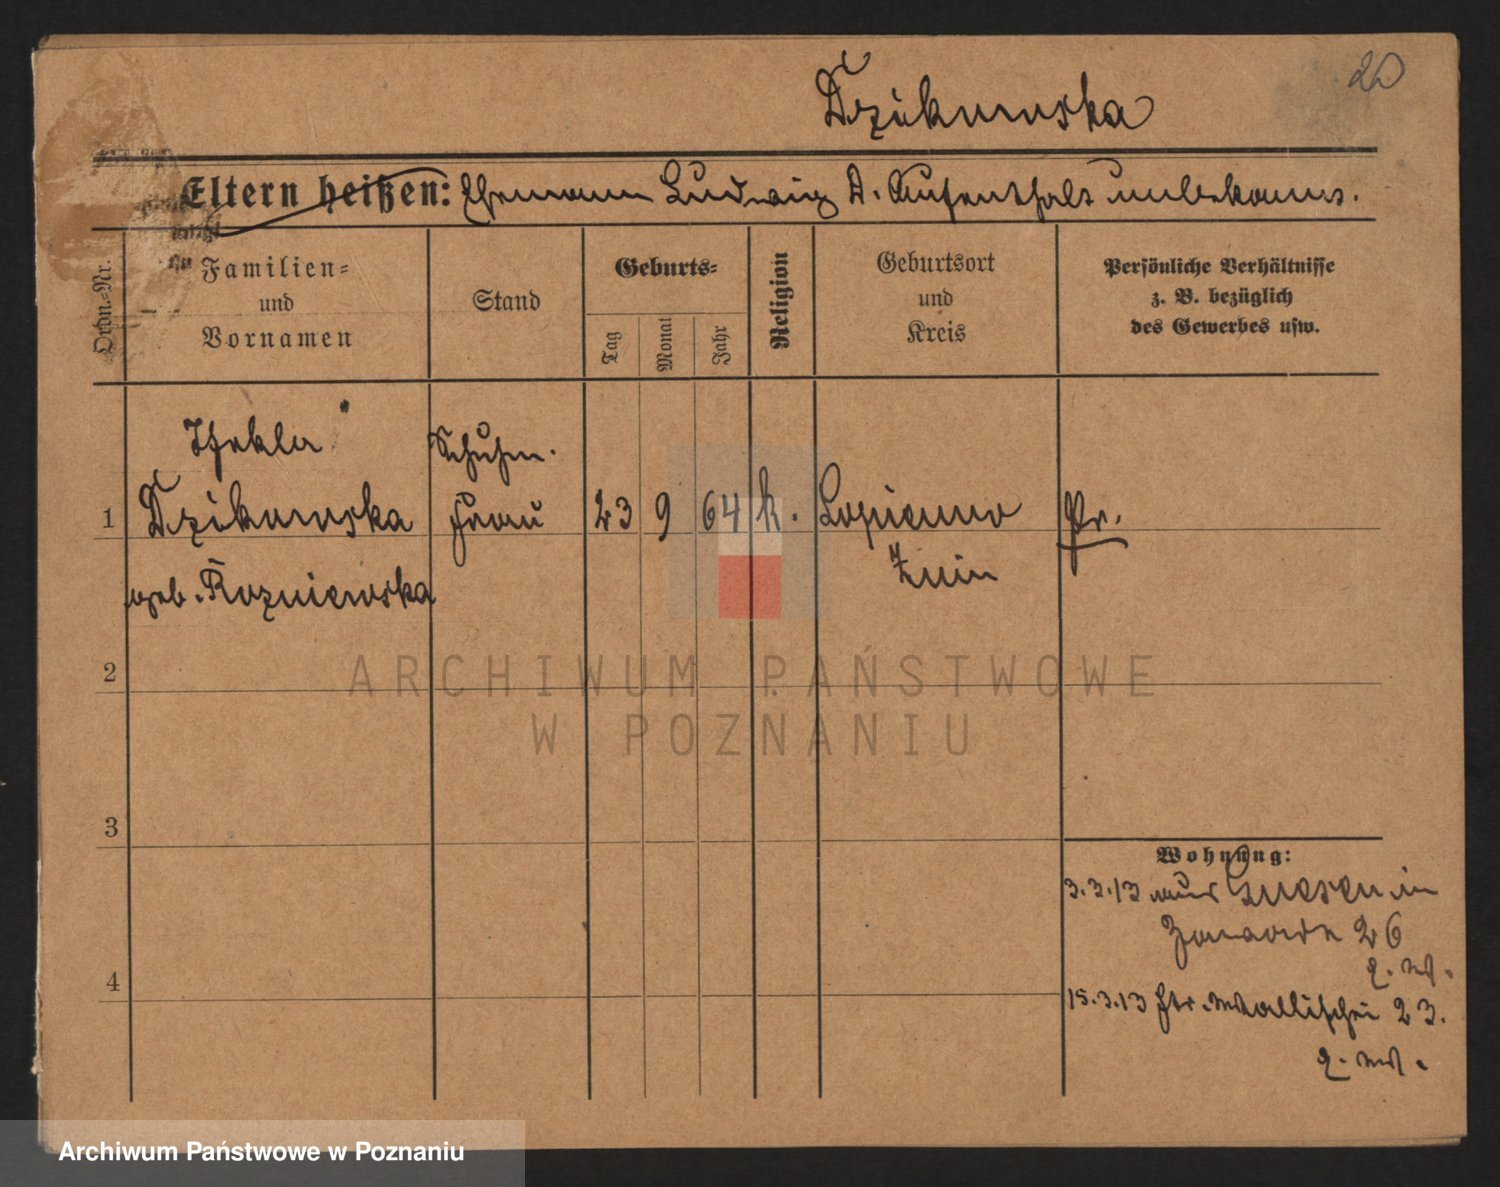 20
Dzikowska
Eltern heißen: Ehemann Ludwig D. Aufenthalt unbekannt.
Ordn.-Nr.
Familien-
und
Vornamen
Stand
Geburts-
Tag
Monat
Jahr
Religion
Geburtsort
und
Kreis
Persönliche Verhältnisse
z. B. bezüglich
des Gewerbes usw.
Thekla
Schuhm.
1 Dzikowska Frau 23 9 64 k. Lopienno Pr.
Znin
geb. Rozniewska
2
ARCHIWUM PAŃSTWOWE
W POZNANIU
3
Wohnung:
3.3.13 aus Gnesen in
Zawade 26
4
15.3.13 Wallischei 23.
Archiwum Państwowe w Poznaniu